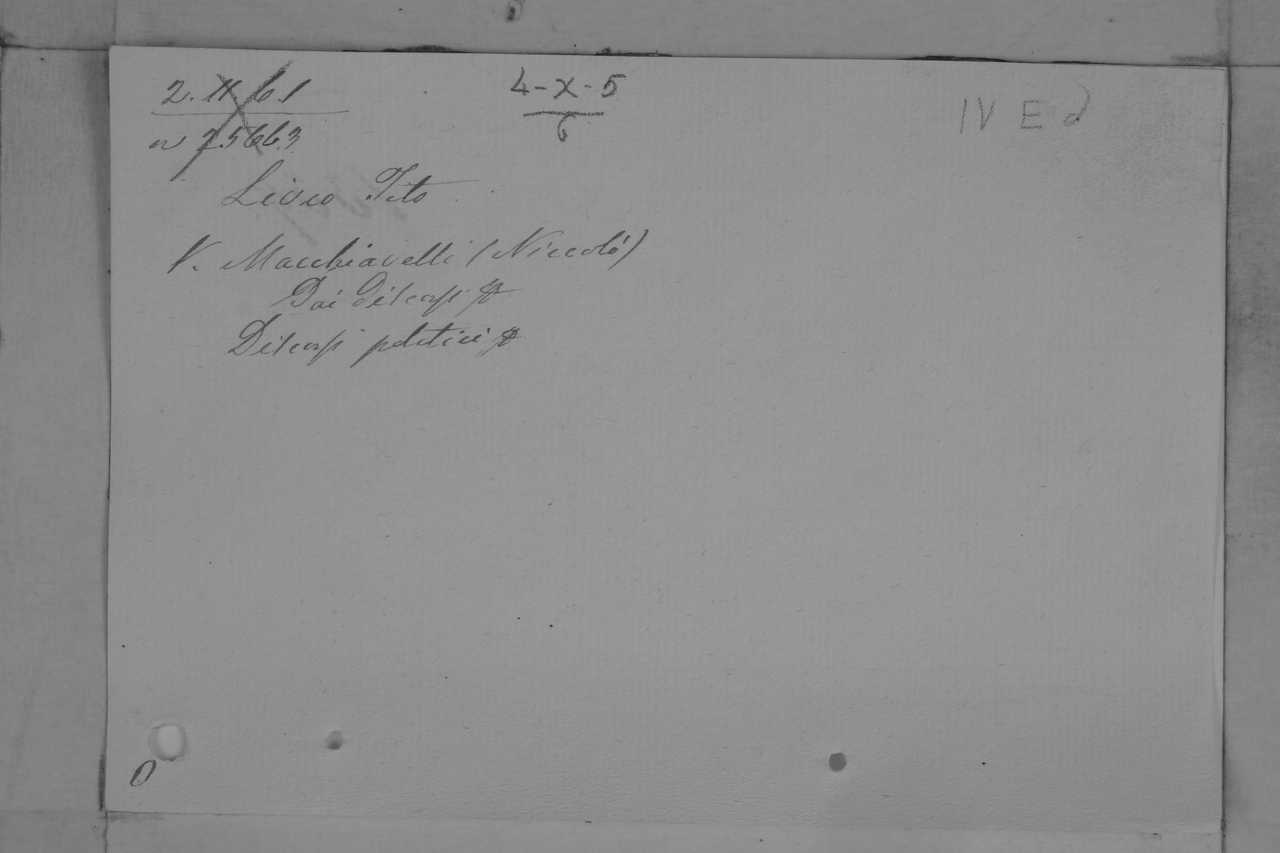 2. 11 6.1
n 7.5663
4-X-5
6
IV E d
Livio Tito
V. Macchiavelli (Niccolò)
Dai Discorsi
Discorsi politici
0